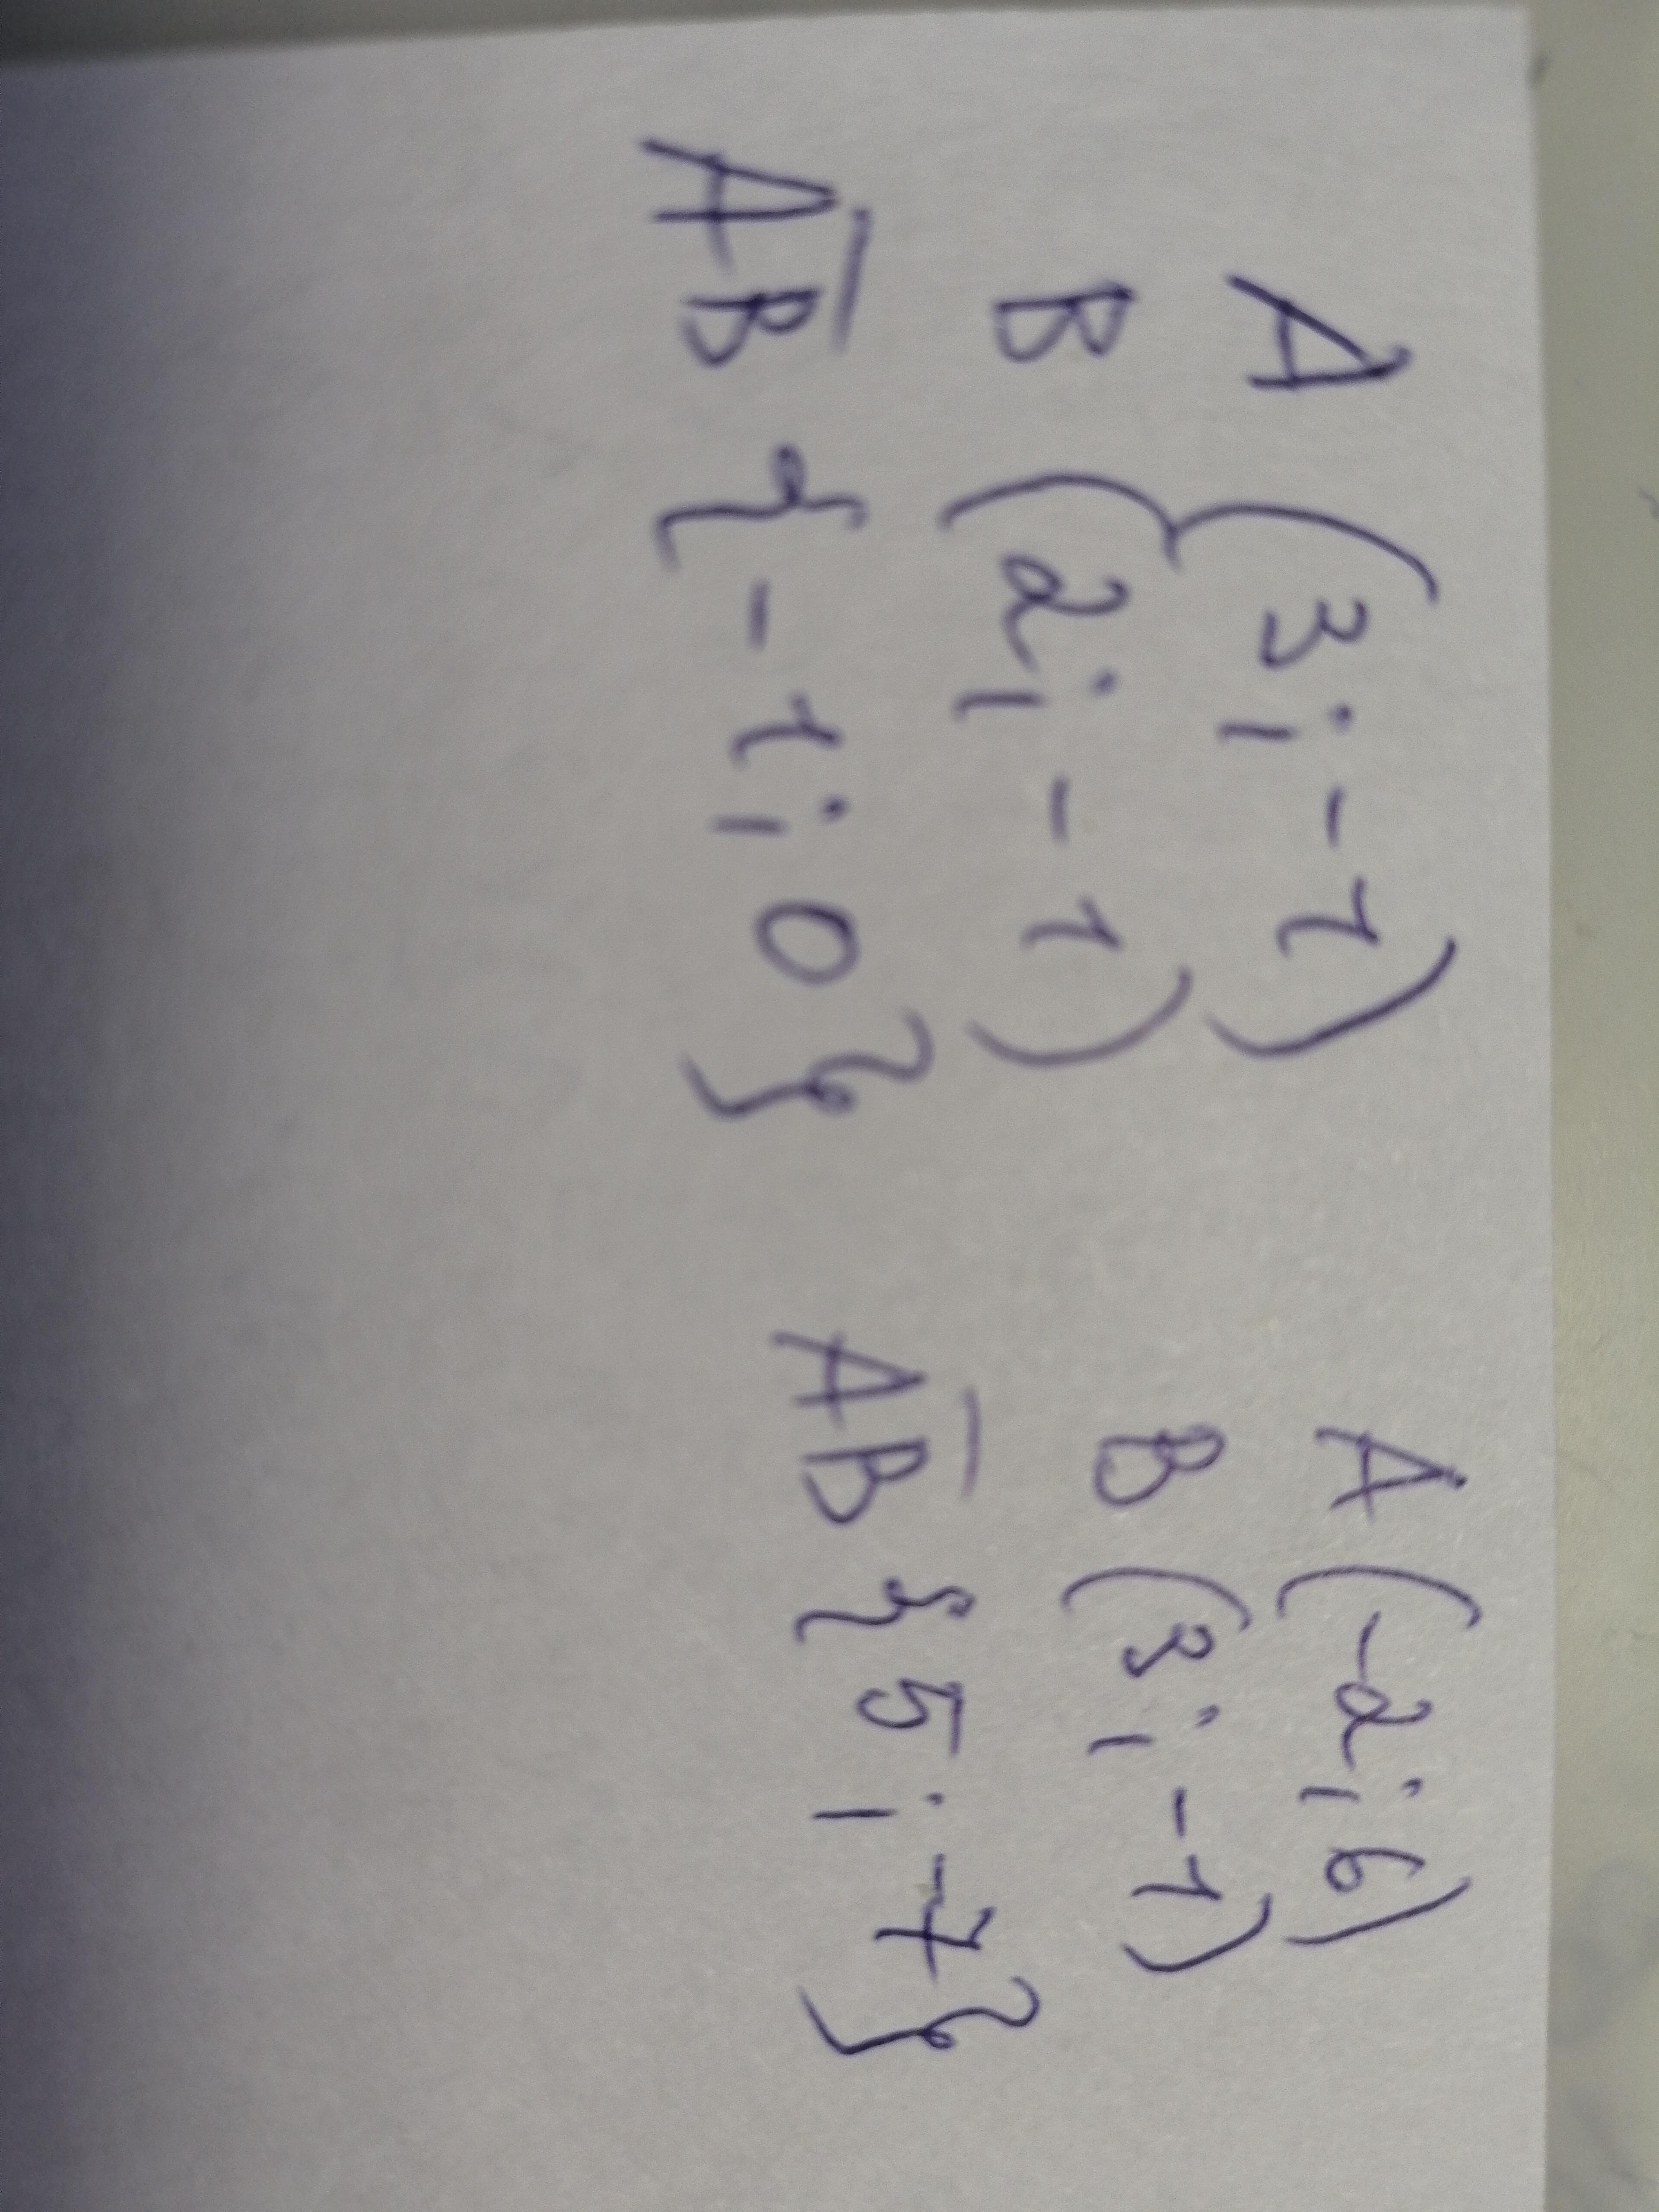 A (3; -1)
B (2; -1)
AB {-1; 0}
A (-2; 6)
B (3; -1)
AB {5; -7}